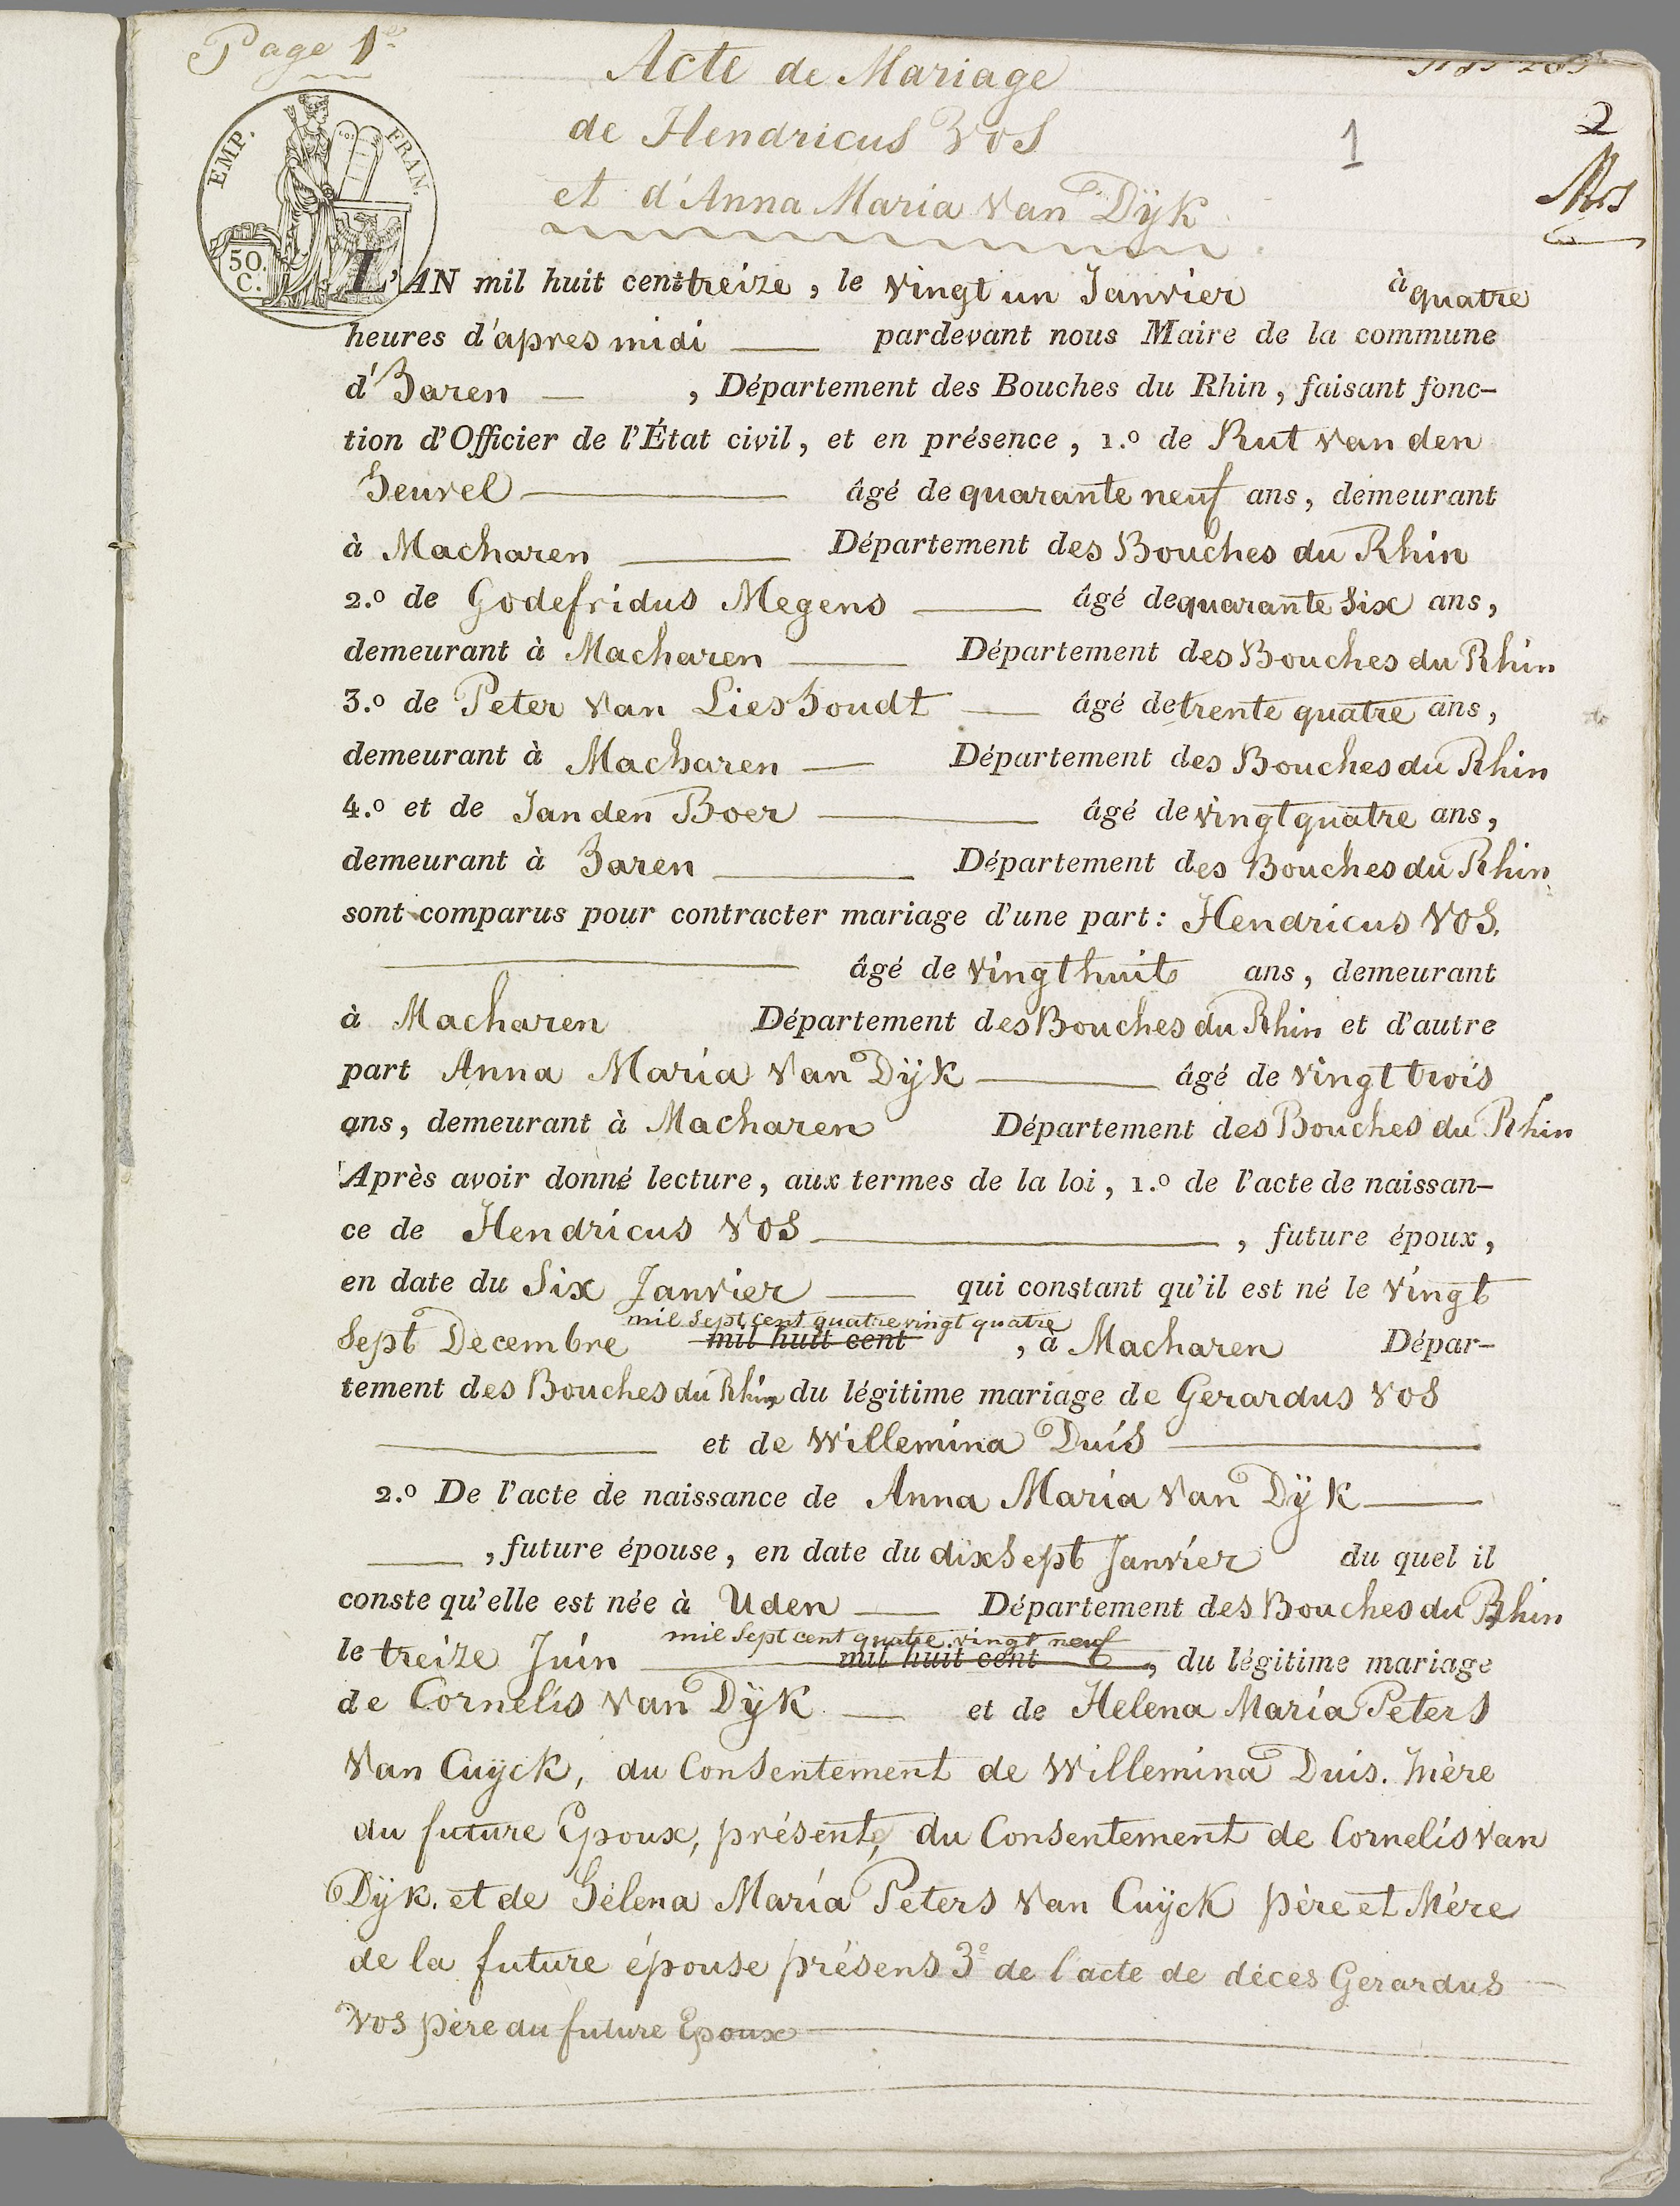 Page 1e
Acte de Mariage
de Hendricus Vos
et d'Anna Maria Van Dÿk
1
2
EMP. FRAN.
50 C.
L'AN mil huit cent treize, le vingt un Janvier à quatre
heures d'apres midi pardevant nous Maire de la commune
d'Haren, Département des Bouches du Rhin, faisant fonc-
tion d'Officier de l'État civil, et en présence, 1.º de Rut van den
Heuvel âgé de quarante neuf ans, demeurant
à Macharen Département des Bouches du Rhin
2.º de Godefridus Megens âgé de quarante six ans,
demeurant à Macharen Département des Bouches du Rhin
3.º de Peter van Lieshoudt âgé de trente quatre ans,
demeurant à Macharen Département des Bouches du Rhin
4.º et de Jan den Boer âgé de vingt quatre ans,
demeurant à Haren Département des Bouches du Rhin
sont comparus pour contracter mariage d'une part: Hendricus Vos,
âgé de vingt huit ans, demeurant
à Macharen Département des Bouches du Rhin et d'autre
part Anna Maria Van Dÿk âgé de vingt trois
ans, demeurant à Macharen Département des Bouches du Rhin
Après avoir donné lecture, aux termes de la loi, 1.º de l'acte de naissan-
ce de Hendricus Vos, future époux,
en date du Six Janvier qui constant qu'il est né le vingt
mil sept cent quatre vingt quatre
Sept Decembre mil huit cent, à Macharen Dépar-
tement des Bouches du Rhin du légitime mariage de Gerardus Vos
et de Willemina Duis
2.º De l'acte de naissance de Anna Maria Van Dÿk
, future épouse, en date du dix Sept Janvier du quel il
conste qu'elle est née à Uden Département des Bouches du Rhin
mil Sept cent quatre vingt neuf
le treize Juin mil huit cent, du légitime mariage
de Cornelis van Dÿk et de Helena Maria Peters
Van Cuÿck, du Consentement de Willemina Duis. Mère
du future Epoux, présente, du Consentement de Cornelis van
Dÿk. et de Hélena Maria Peters Van Cuÿck père et Mère
de la future épouse présens 3º de l'acte de décès Gerardus
Vos père du future Epoux